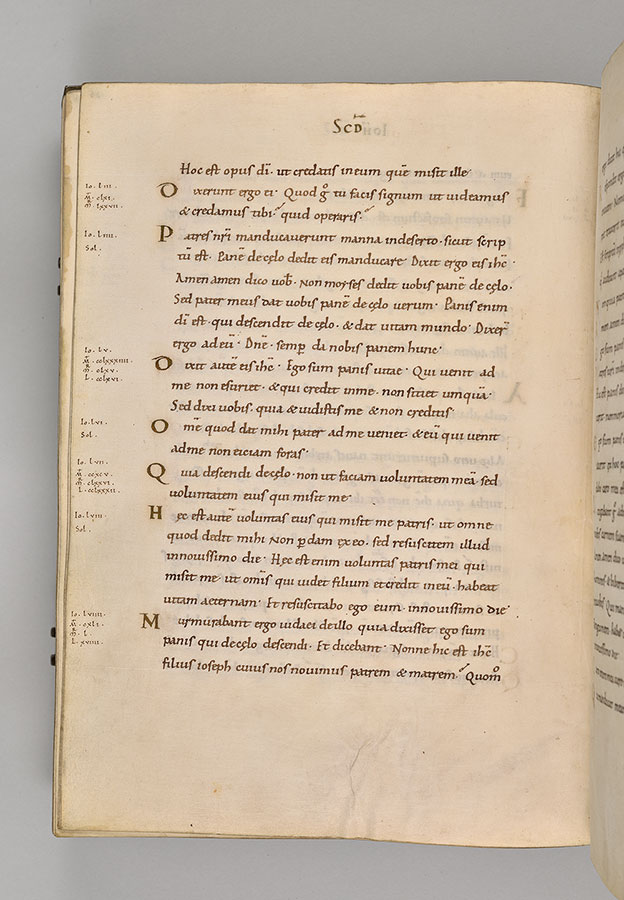 SCD̄
Hoc est opus dī· ut credatis in eum quē misit ille·
Dixerunt ergo ei· Quod g̊ tu facis signum ut uideamus
& credamus tibi· quid operaris·
Patres nr̄i manducauerunt manna indeserto· sicut scrip
tū est· Panē de cęlo dedit eis manducare· Dixit ergo eis ih̄c·
Amen amen dico uob̄· Non moyses dedit uobis panē de cęlo·
Sed pater meus dat uobis panē de cęlo uerum· Panis enim
dī est· qui descendit de cęlo· & dat uitam mundo· Dixer̄
ergo ad eū· Dn̄e· semp̲ da nobis panem hunc·
Dixit autē eis ih̄c· Ego sum panis uitae· Qui uenit ad
me non esuriet· & qui credit inme· non sitiet umquā·
Sed dixi uobis· quia & uidistis me & non creditis·
Om̄e quod dat mihi pater ad me ueniet· & eū qui uenit
adme non eiciam foras·
Quia descendi decęlo· non ut faciam uoluntatem meā· sed
uoluntatem eius qui misit me·
Hęc est autē uoluntas eius qui misit me patris· ut omne
quod dedit mihi Non p̲dam ex eo· sed resuscitem illud
innouissimo die· Hęc est enim uoluntas patris mei qui
misit me· ut om̄is qui uidet filium et credit in eū· habeat
uitam aeternam· Et resuscitabo ego eum· innouissimo die·
Murmurabant ergo iudaei de illo quia dixisset ego sum
panis qui de cęlo descendi· Et dicebant· Nonne hic est ih̄c
filius ioseph cuius nos nouimus patrem & matrem· Quom̊
Io. LIII.
m̄. CLXI.
m̄. LXXVII.
Io. LIIII.
Sol.
Io. LV.
L. CCLXVI.
Io. LVI.
Sol.
Io. LVII.
m̄. CLXXVI.
L. CCLXXXII.
Io. LVIII.
Sol.
Io. LVIIII.
m̄. CXLI.
m̄. L.
L. XVIIII.